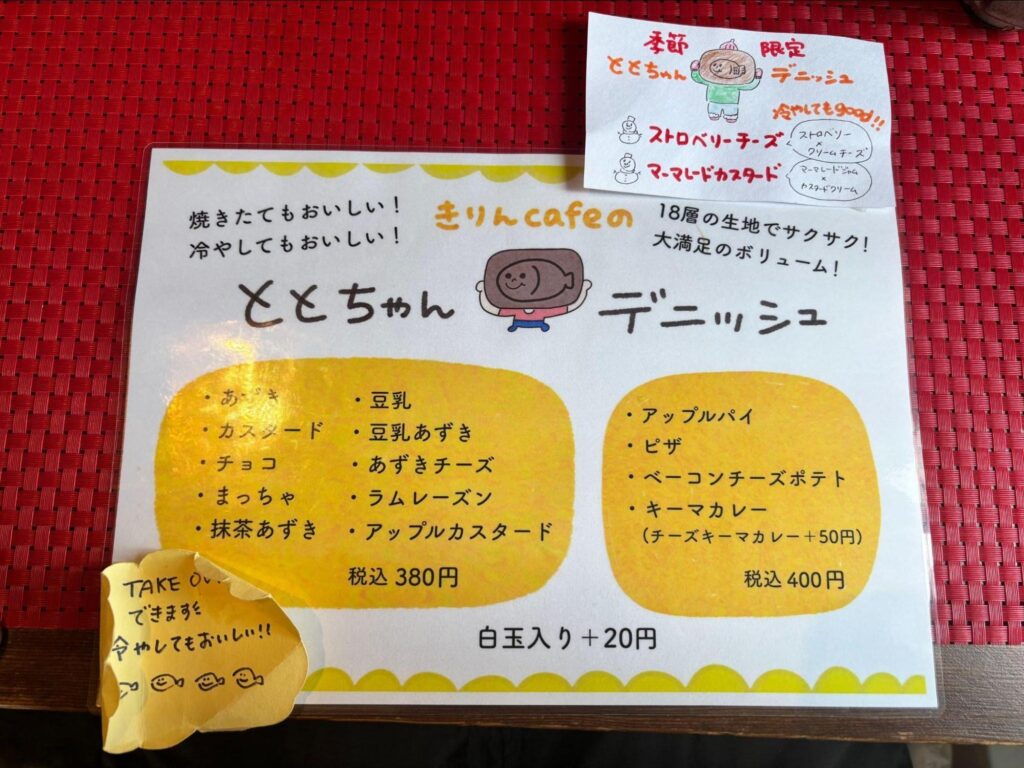 季節 限定
ととちゃん デニッシュ
冷やしてもgood!!
ストロベリーチーズ
ストロベリー
×
クリームチーズ
マーマレードカスタード
マーマレードジャム
×
カスタードクリーム
焼きたてもおいしい!
冷やしてもおいしい!
きりんcafeの
18層の生地でサクサク!
大満足のボリューム!
ととちゃん デニッシュ
・あずき
・カスタード
・チョコ
・まっちゃ
・抹茶あずき
・豆乳
・豆乳あずき
・あずきチーズ
・ラムレーズン
・アップルカスタード
税込 380円
・アップルパイ
・ピザ
・ベーコンチーズポテト
・キーマカレー
(チーズキーマカレー+50円)
税込 400円
白玉入り+20円
TAKE
できます
冷やしてもおいしい!!